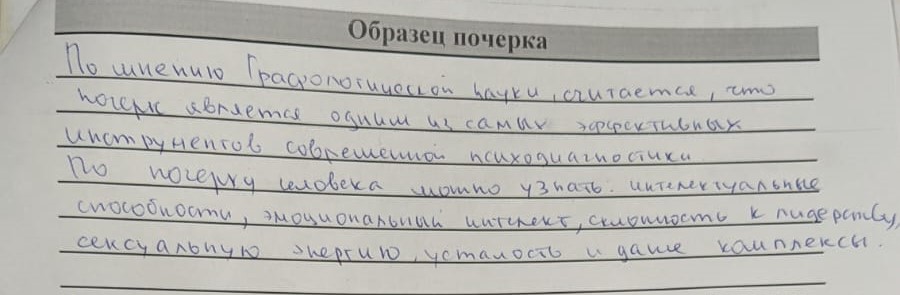 Образец почерка
По мнению Графологической науки, считается, что
почерк является одним из самых эффективных
инструментов современной психодиагностики
По почерку человека можно узнать: интелектуальные
способности, эмоциональный интелект, склонность к лидерству,
сексуальную энергию, усталость и даже комплексы.